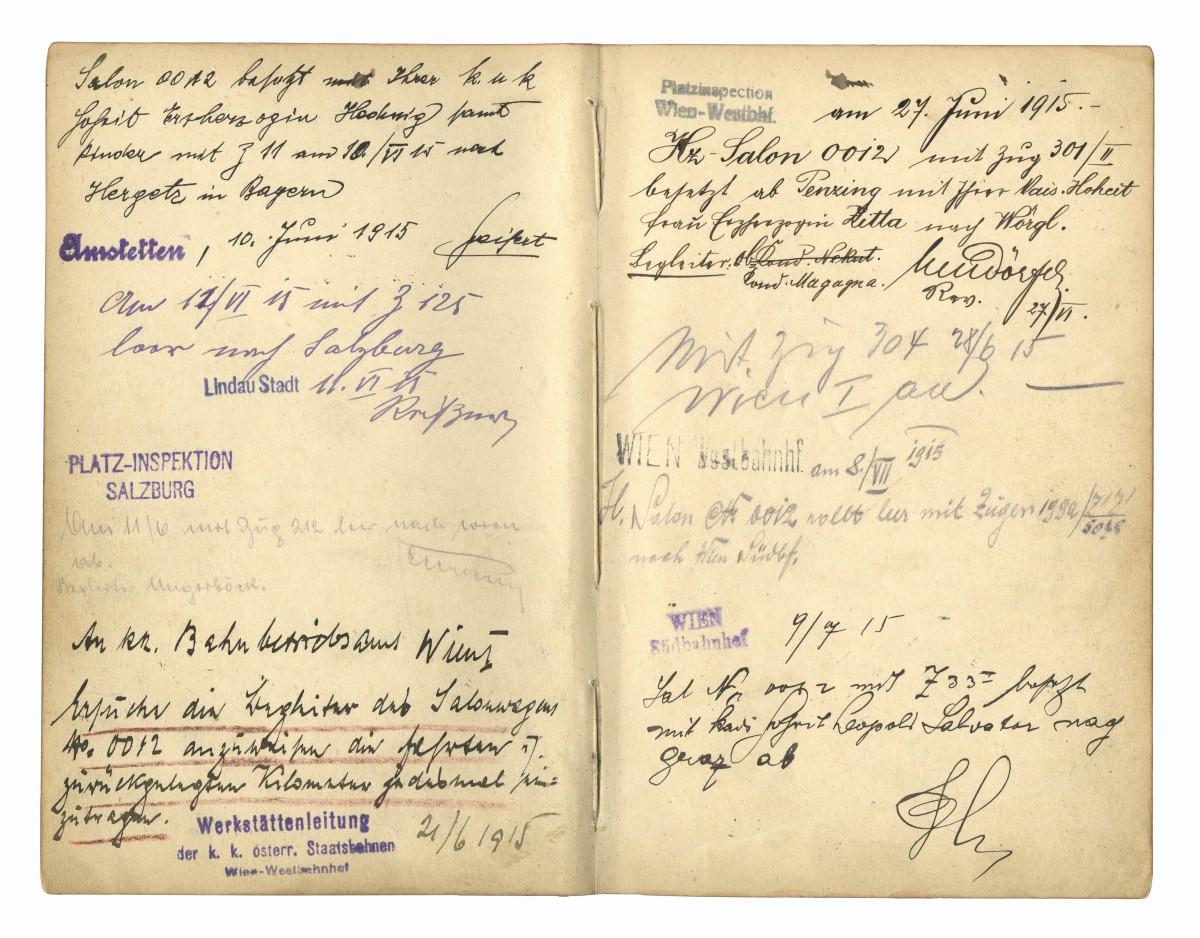 Salon 0012 besetzt mit Ihrer k. u k
Hoheit Erzherzogin Hedwig samt
Kinder mit Z 11 am 10./VI 15 nach
Hergetz in Bayern
Amstetten, 10. Juni 1915 Seifert
Am 11/VI 15 mit Z 125
leer nach Salzburg
Lindau Stadt 11. VI 15
PLATZ-INSPEKTION
SALZBURG
Am 11/6 mit Zug 212 leer nach Wien
ab.
Begleiter Ungerböck.
An kk. Bahnbetriebsamt Wien I
Ersuche die Begleiter des Salonwagens
No. 0012 anzuweisen die Fahrten u
zurückgelegten Kilometer jedesmal ein-
zutragen.
Werkstättenleitung
der k. k. österr. Staatsbahnen
Wien-Westbahnhof
21/6 1915
Platzinspection
Wien-Westbhf.
am 27. Juni 1915.-
Hz-Salon 0012 mit Zug 301/II
besetzt ab Penzing mit Ihrer Kais. Hoheit
Frau Erzherzogin Zitta nach Wörgl.
Begleiter: Ob Cond. Nekut.
Cond. Magagna.
Rev. 27/VI.
Mit Zug 304 28/6 15
Wien I an.
WIEN Westbahnhf. am 8./VII 1915
H. Salon No 0012 rollt leer mit Zügen
nach Wien Südbf.
WIEN
Südbahnhof
9/7 15
Sal No 0012 mit Z 33 besetzt
mit Hoheit Leopold Salvator nag
Graz ab